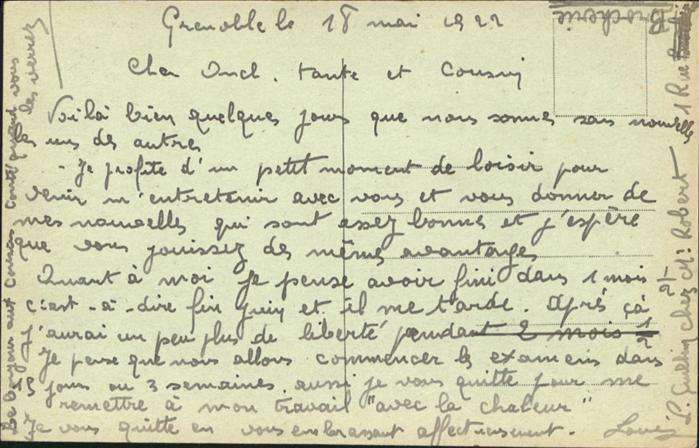 Grenoble le 18 mai 1922
Cher Oncl. tante et Cousin
Voilà bien quelques jours que nous sommes sans nouvelle
les uns des autres
- Je profite d'un petit moment de loisir pour
venir m'entretenir avec vous et vous donner de
mes nouvelles qui sont assez bonnes et j'espère
que vous jouissez des mêmes avantages
Quant à moi je pense avoir fini dans 1 mois
c'est-à-dire fin juin et il me tarde. Après çà
j'aurai un peu plus de liberté pendant 2 mois 1/2
Je pense que nous allons commencer les examens dans
15 jours ou 3 semaines. aussi je vous quitte pour me
remettre à mon travail "avec la chaleur"
Je vous quitte en vous embrassant affectueusement. Louis
Bonjour aux Cousins quand vous
les verrez
chez Mr Robert 1 Rue
Brocherie